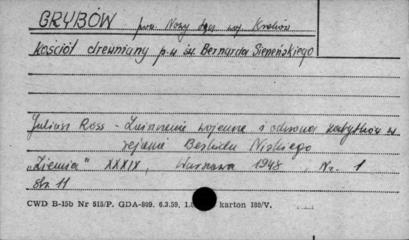 GRYBÓW pow. Nowy Sącz woj. Kraków
Kościół drewniany p.w św. Bernarda Sieneńskiego
Julian Ross - Zniszczenie wojenne i odbudowa zabytków w
rejonie Beskidu Niskiego
„Ziemia" XXXIX, Warszawa 1948, Nr. 1
str. 11
CWD B-15b Nr 515/P. GDA-809. 6.3.59, karton 180/V.